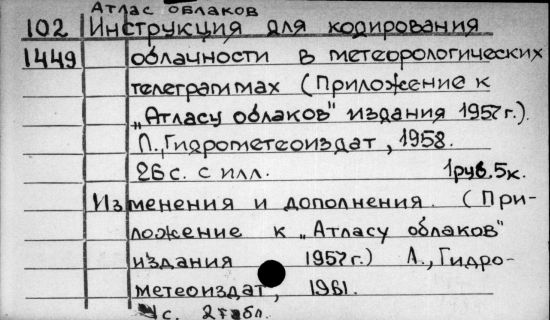 Атлас облаков
102 Инструкция для кодирования
1449 облачности в метеорологических
телеграммах (Приложение к
„Атласу облаков" издания 1957г.).
Л., Гидрометеоиздат, 1958.
26с. с илл. 1руб.5к.
Изменения и дополнения. (При-
ложение к „Атласу облаков"
издания 1957г.) Л., Гидро-
метеоиздат, 1961.
с. 2табл.